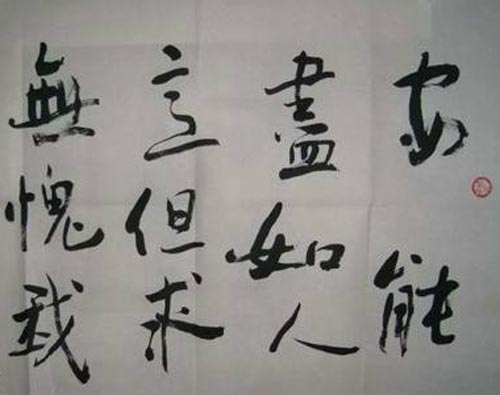 安能
盡如人
意但求
無愧我